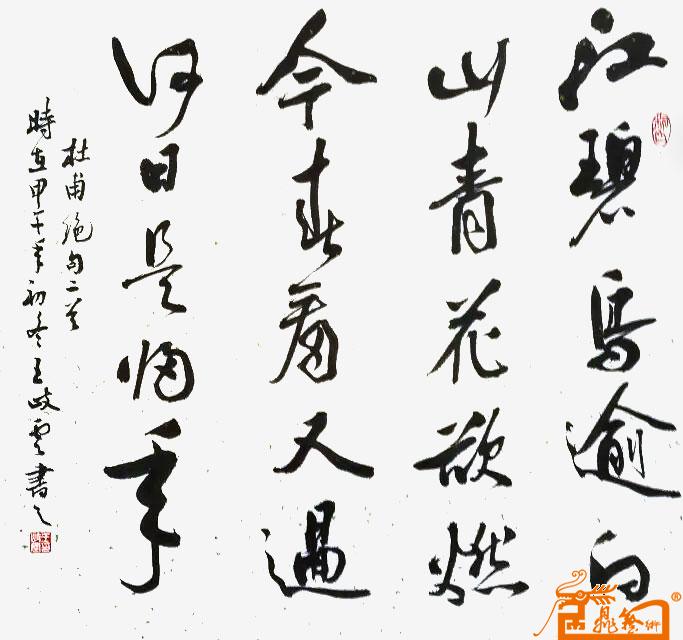 江碧鳥逾白
山青花欲燃
今春看又過
何日是歸年
杜甫絕句二首
時在甲午年初冬王岐雲書之